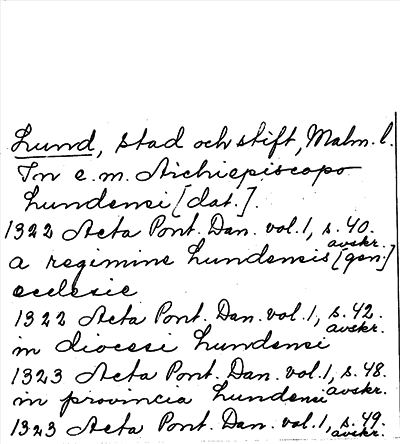 Lund, stad och stift, Malm. l.
In e. m. Archiepiscopo
Lundensi [dat.].
1322 Acta Pont. Dan. vol. 1, s. 40.
avskr.
a regimine Lundensis [gen.]
ecclesie
1322 Acta Pont. Dan. vol. 1, s. 42.
avskr.
in diocesi Lundensi
1323 Acta Pont. Dan. vol. 1, s. 48.
avskr.
in provincia Lundensi
1323 Acta Pont. Dan. vol. 1, s. 49.
avskr.